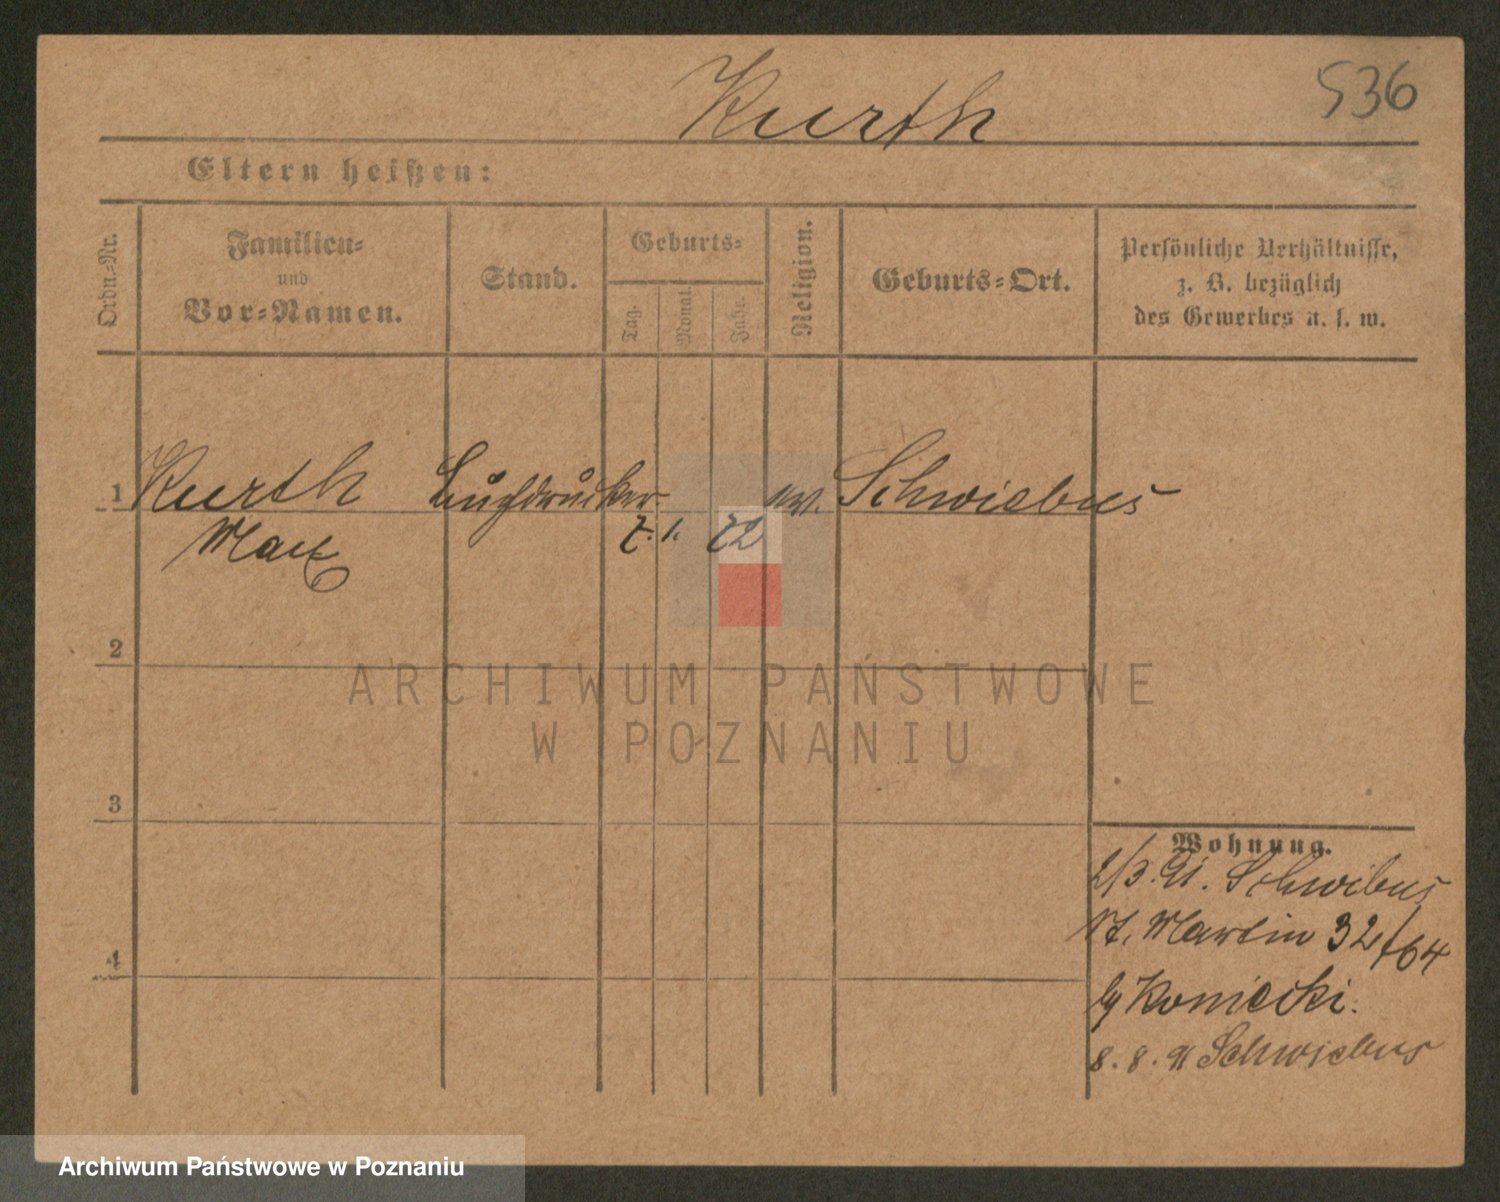 Kurth 536
Eltern heißen:
Ordn.-Nr.
Familien-
und
Vor-Namen.
Stand.
Geburts-
Tag.
Monat.
Jahr.
Religion.
Geburts-Ort.
Persönliche Verhältnisse,
z. B. bezüglich
des Gewerbes u. s. w.
1 Kurth Buchdrucker ev. Schwiebus
Max 7. 1. 72
2
ARCHIWUM PAŃSTWOWE
W POZNANIU
3
Wohnung.
2/3. 91. Schwibus
St. Martin 32/64
b/ Koniecki.
4
8. 8. 91 Schwiebus
Archiwum Państwowe w Poznaniu